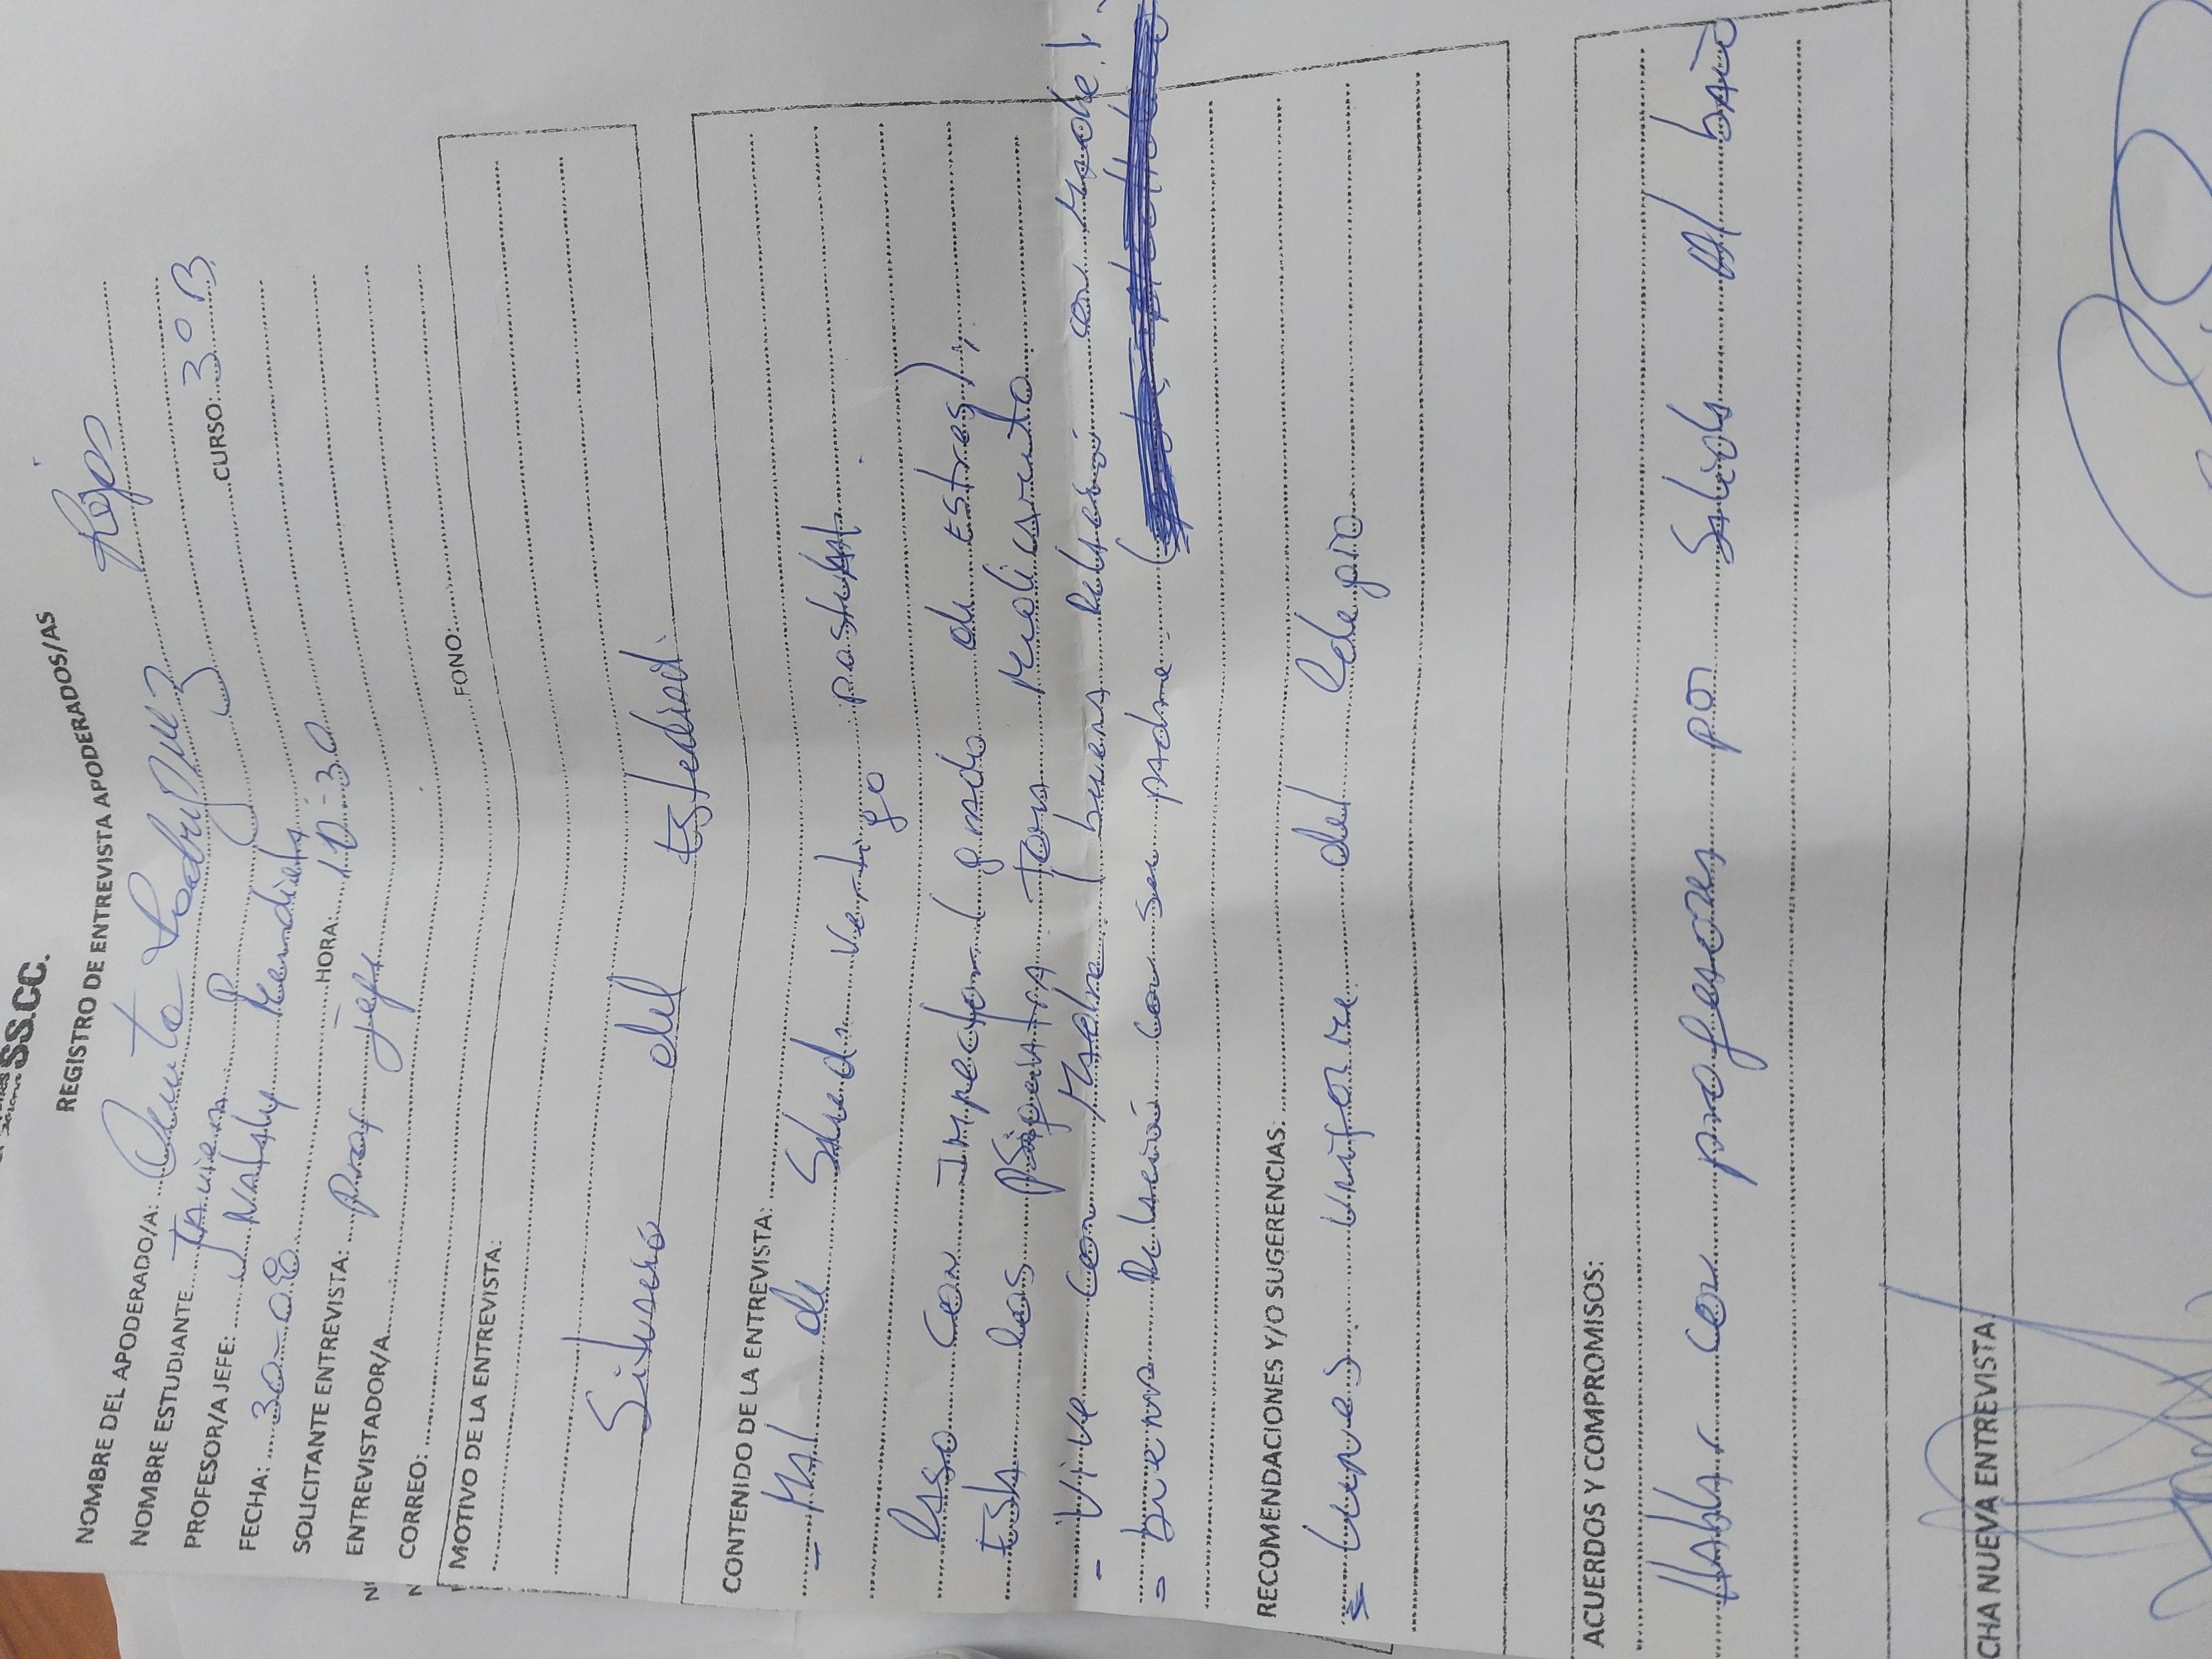 SS.CC.
REGISTRO DE ENTREVISTA APODERADOS/AS
NOMBRE DEL APODERADO/A: Rodriguez Rojas
NOMBRE ESTUDIANTE Javiera
PROFESOR/A JEFE: Nataly P CURSO: 3° B
FECHA: 30-08 HORA: 10-30
SOLICITANTE ENTREVISTA: Prof Jefe
ENTREVISTADOR/A
CORREO: FONO:
MOTIVO DE LA ENTREVISTA:
Situació del Estudiant.
CONTENIDO DE LA ENTREVISTA:
- Mal de Salud. vertigo postural.
Paso con Inspector (grado de estres),
Esta psiquiatra Toma Medicamento
- Vive con Madre (buena Relación con Madre)
= buena Relación con ser padre (
RECOMENDACIONES Y/O SUGERENCIAS:
= Lunes uniforme del Colegio
ACUERDOS Y COMPROMISOS:
Hablar con profesores por Salida al baño
CHA NUEVA ENTREVISTA